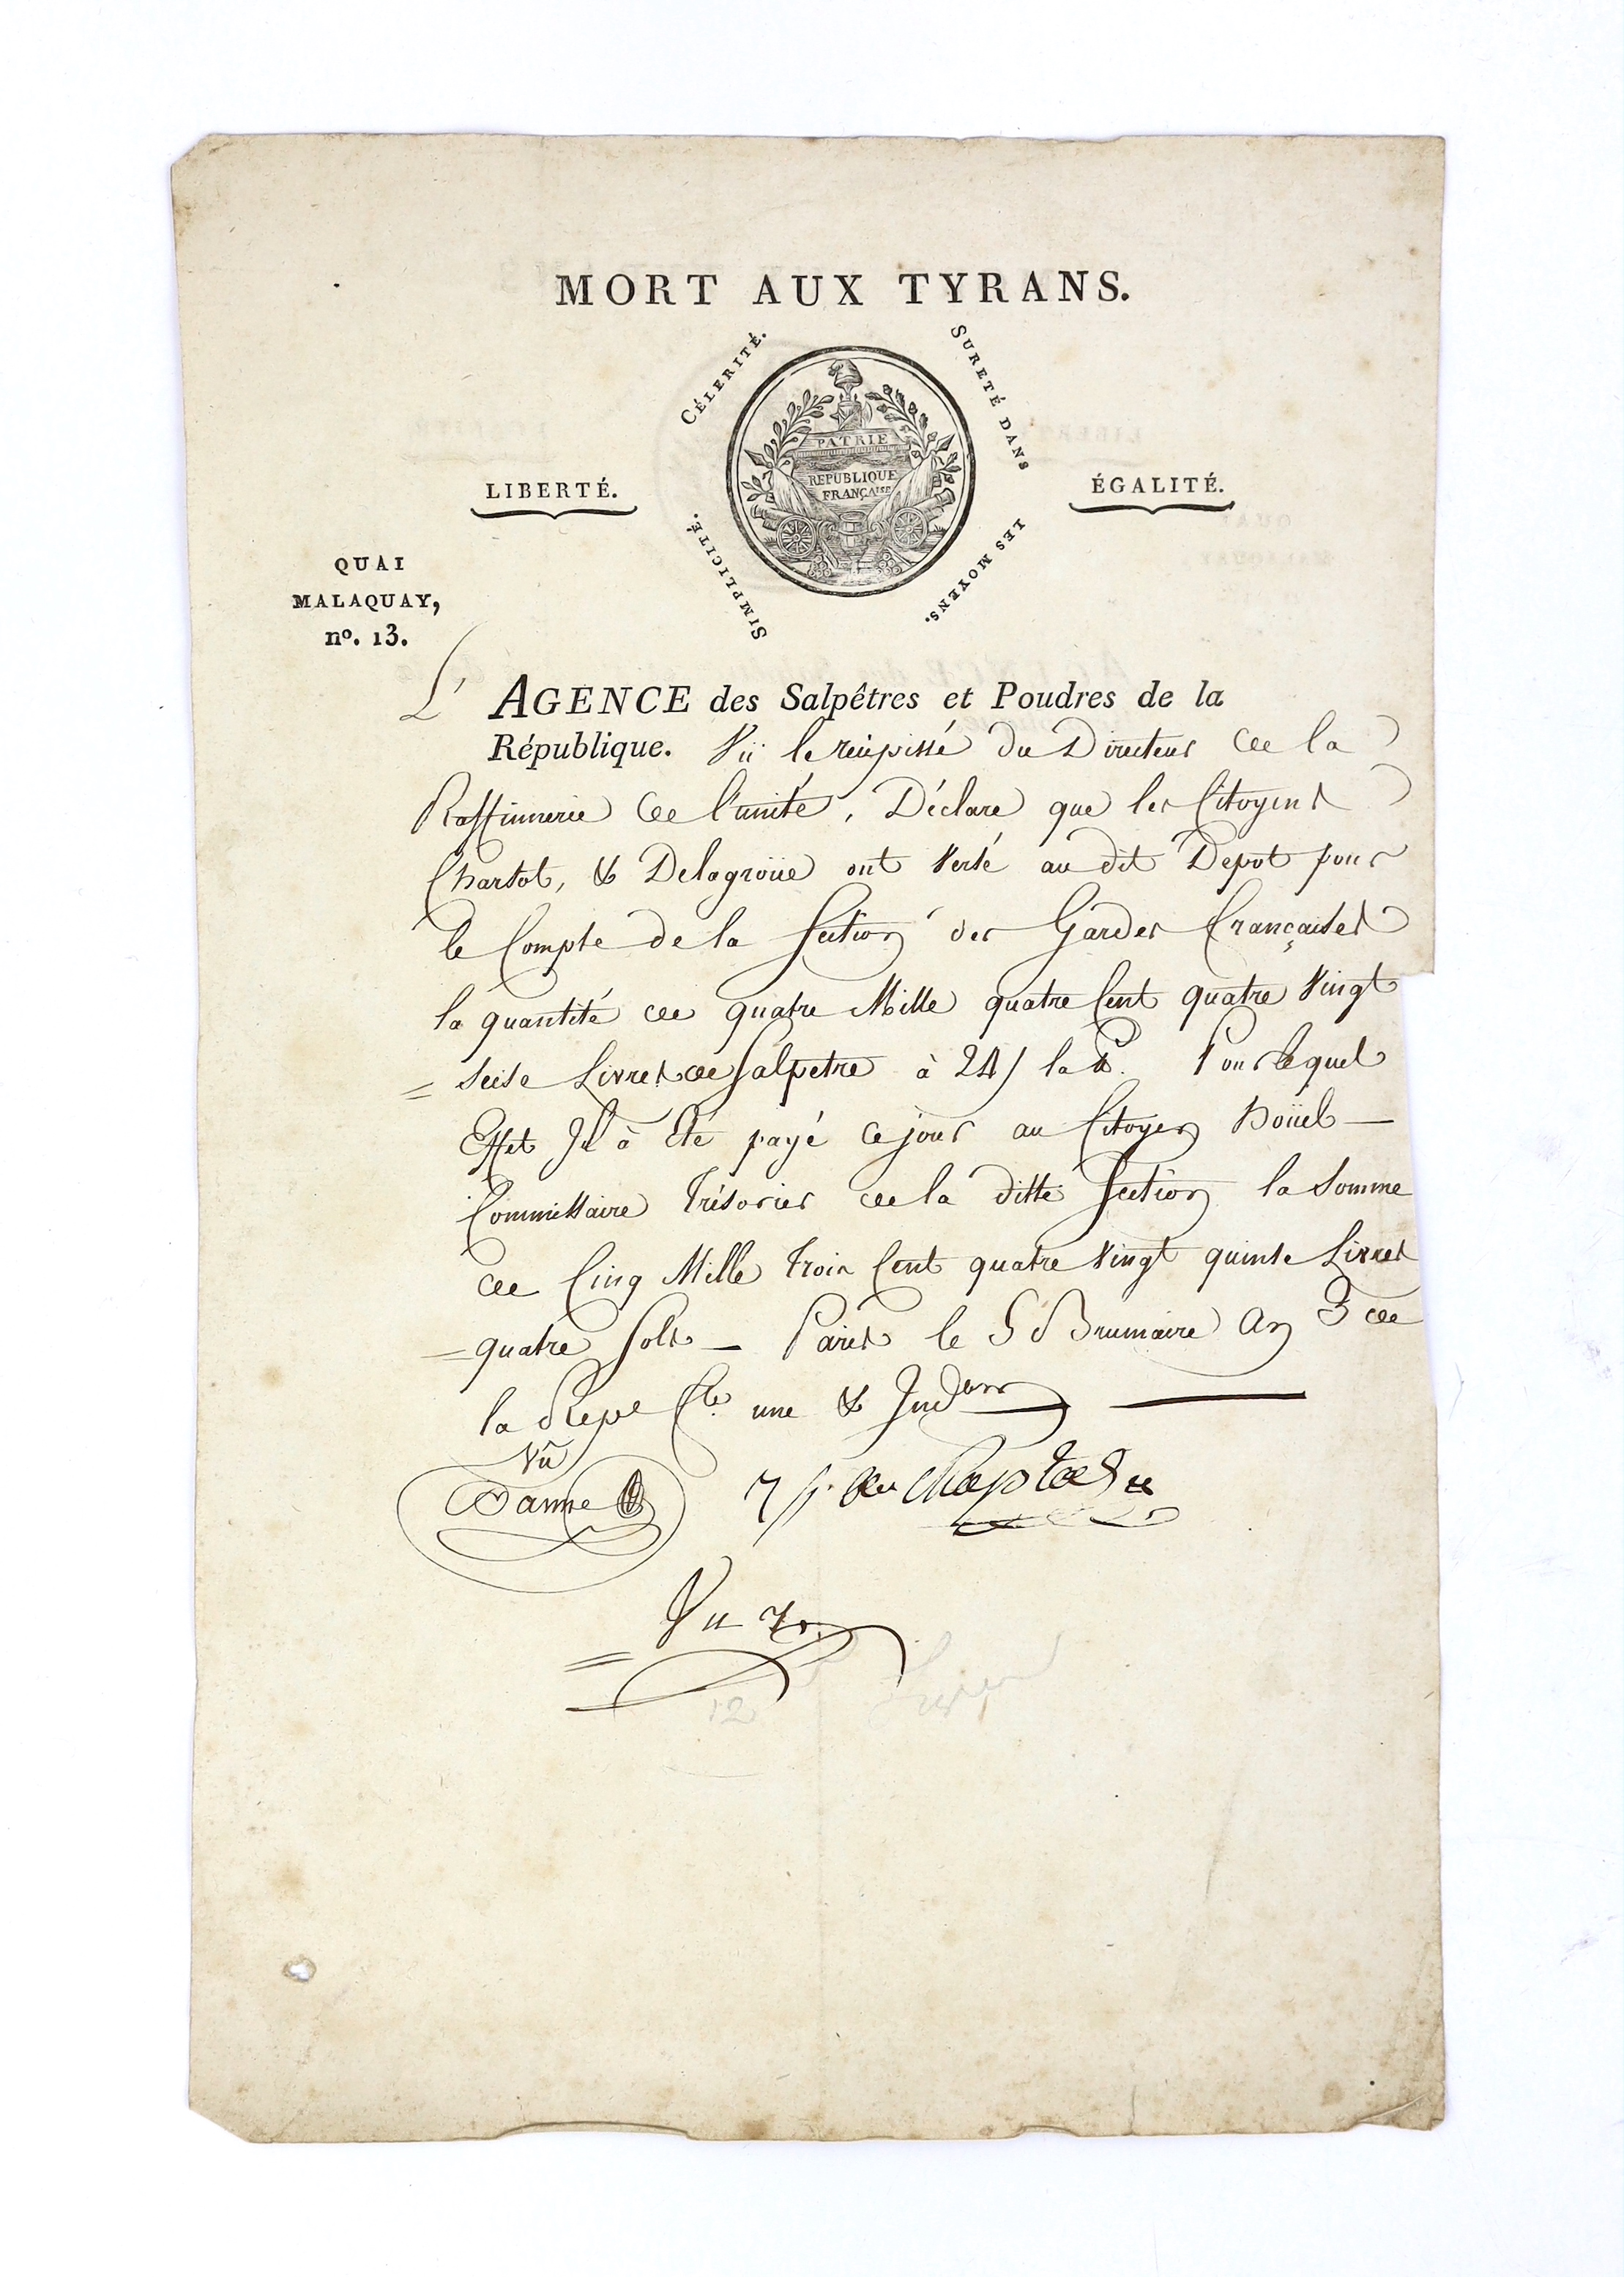 MORT AUX TYRANS.
CÉLERITÉ.
SURETÉ DANS
LES MOYENS.
SIMPLICITÉ.
PATRIE
REPUBLIQUE
FRANÇAISE
LIBERTÉ.
ÉGALITÉ.
QUAI
MALAQUAY,
nº. 13.
L' AGENCE des Salpêtres et Poudres de la
République. Vü le récépissé du Directeur de la
Raffinnerie de l'unité, Déclare que les Citoyens
& Delagroüe ont Versé au dit Depot pour
le Compte de la Section des Gardes Françaises
la quantité de quatre Mille quatre Cent quatre Vingt
= seise Livres de Salpetre à 24 s la ℔. Pour lequel
Effet Il à Eté payé ce jour au Citoyen hoüel —
Commissaire Trésorier de la ditte Section la Somme
de Cinq Mille Trois Cent quatre Vingt quinse Livres
= quatre Sols — Paris le 5 Brumaire An 3 de
la Repe fse. une & Inder
Vu
chaptal
Vu
12